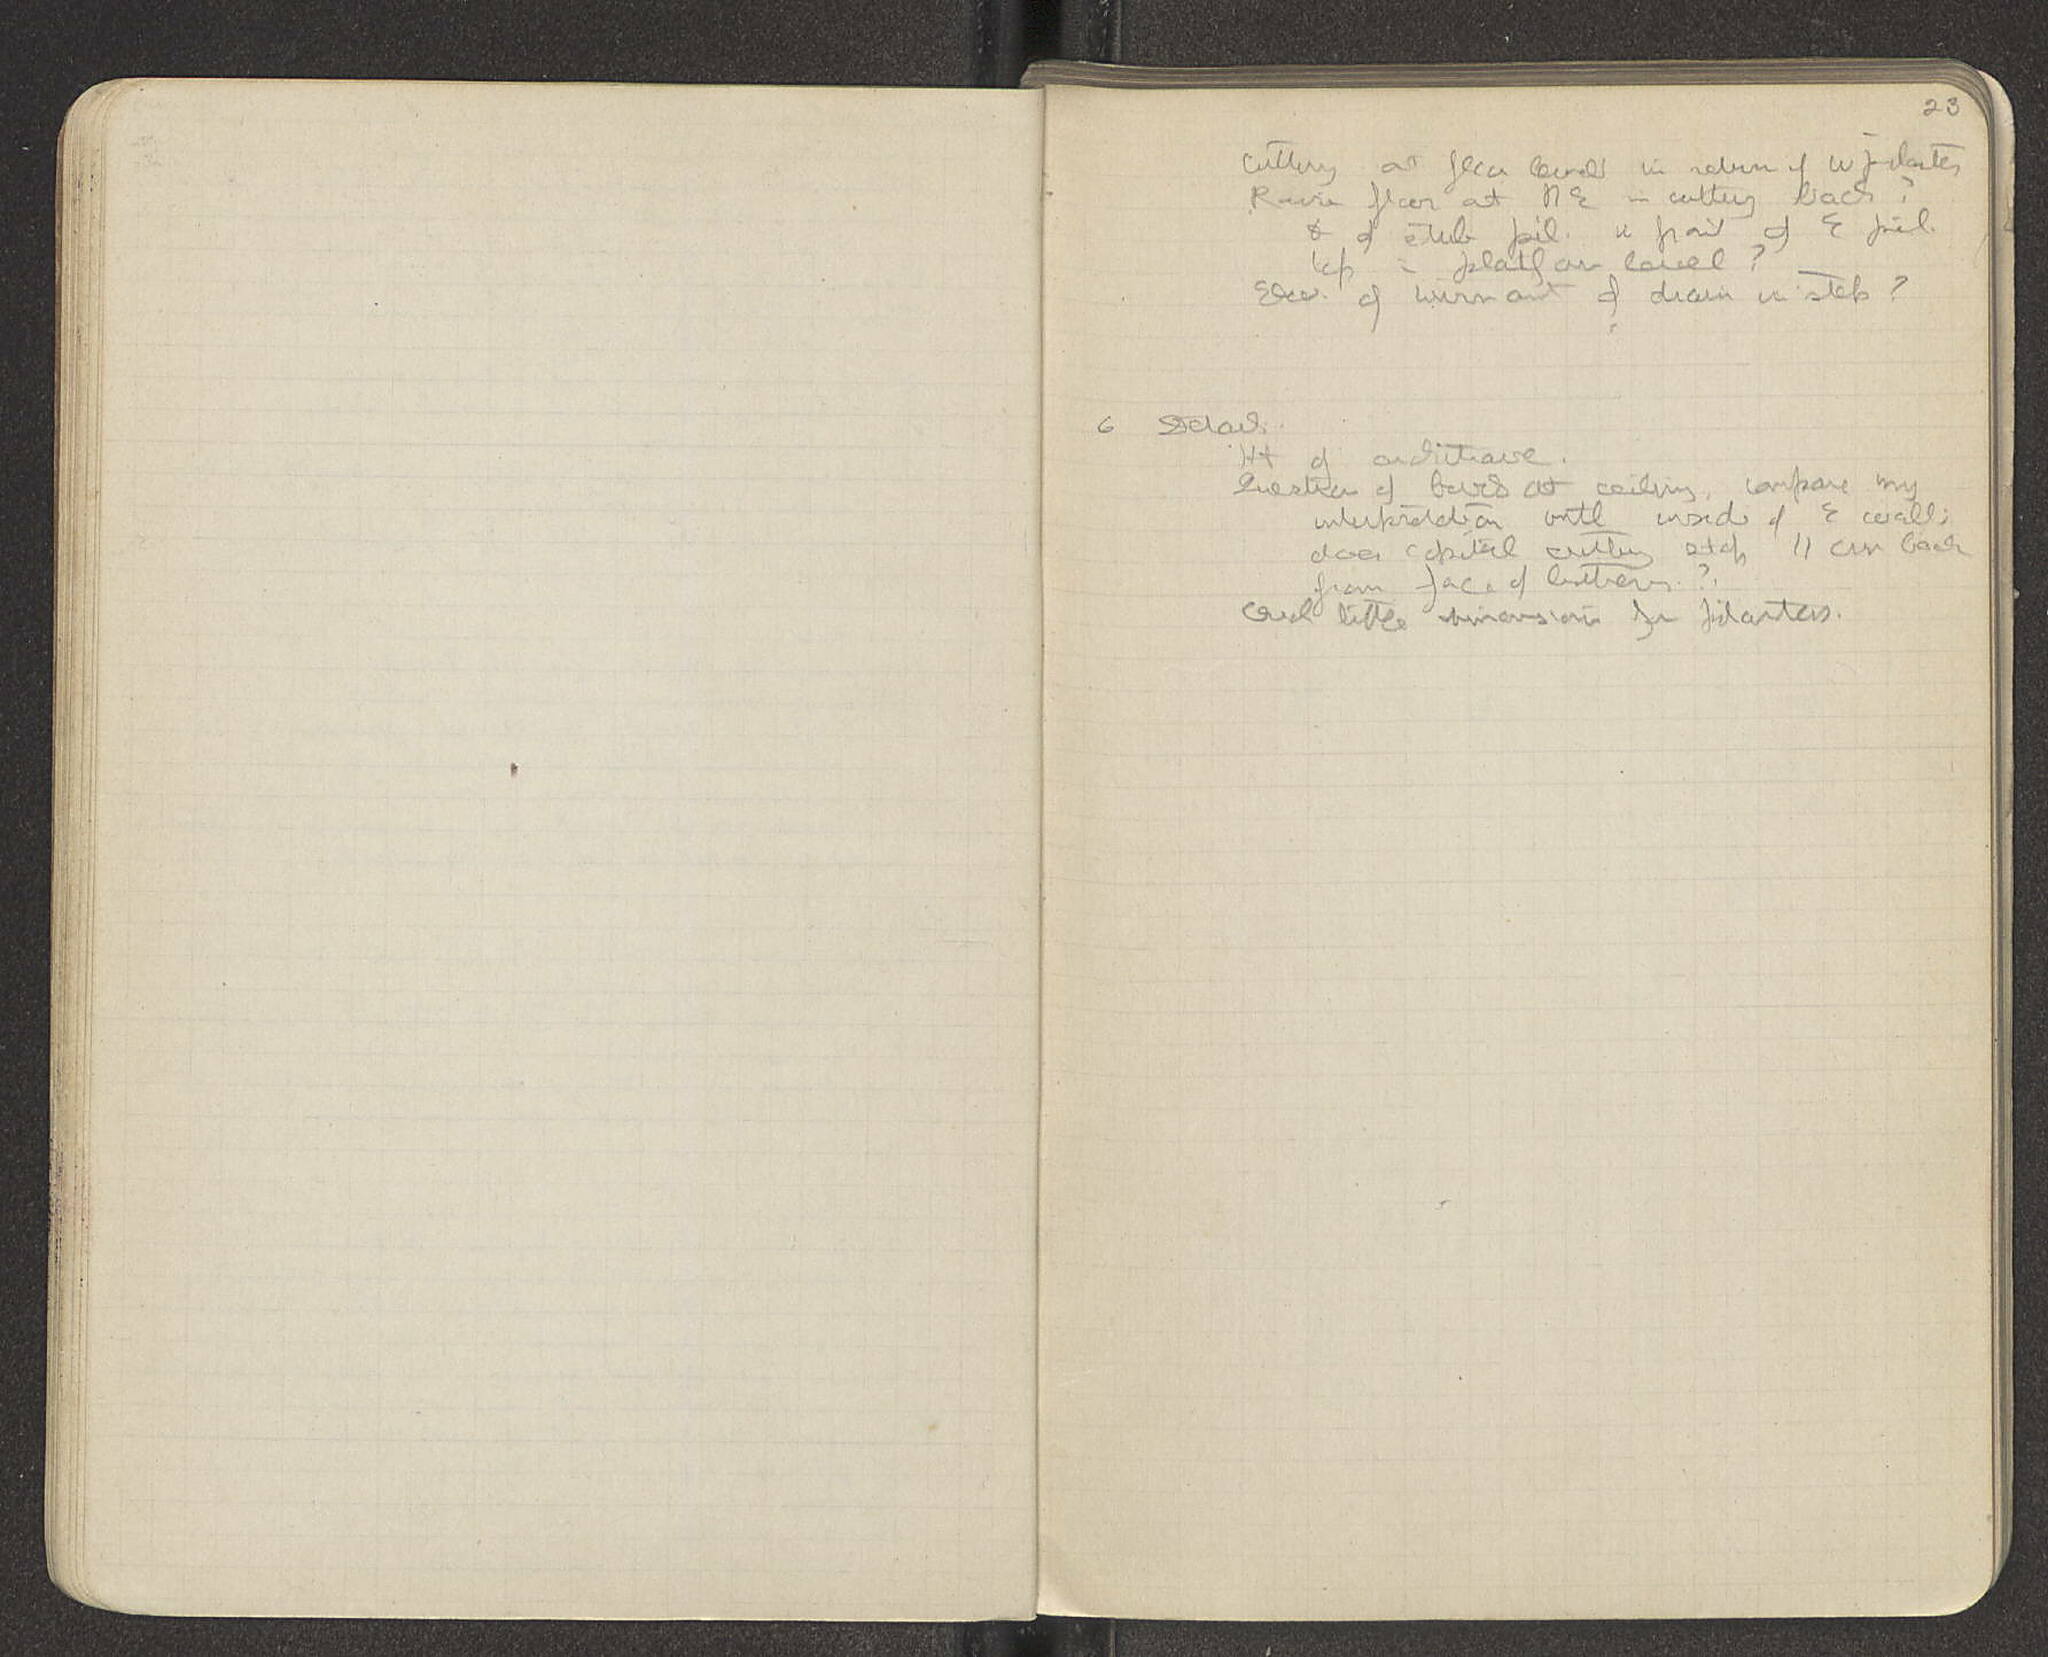 23
cutting at floor level in return of W pilaster
floor at NE in cutting back?
& of stub pil. in front of E pil.
top = platform level?
Elev. of of drain in step?
6 Detail.
Ht of architrave.
Question of band at ceiling, compare my
interpretation with inside of E wall;
does capital cutting stop 11 cm back
from face of ?
little dimensions for pilasters.